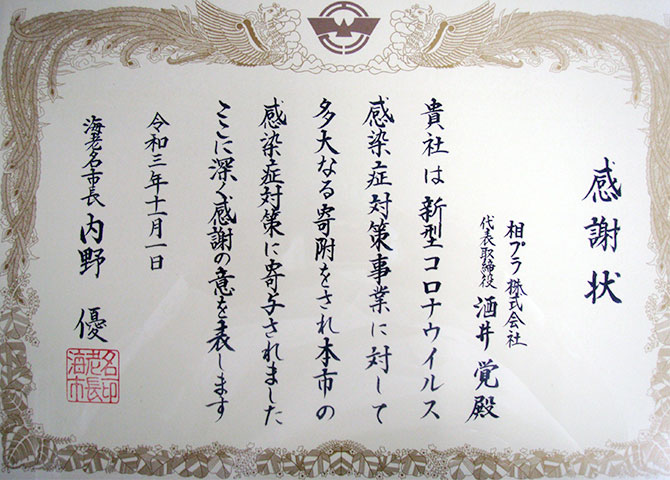 感謝状
相プラ株式会社
代表取締役 酒井 覚 殿
貴社は新型コロナウイルス
感染症対策事業に対して
多大なる寄附をされ本市の
感染症対策に寄与されました
ここに深く感謝の意を表します
令和三年十一月一日
海老名市長 内野 優
海老名市長印